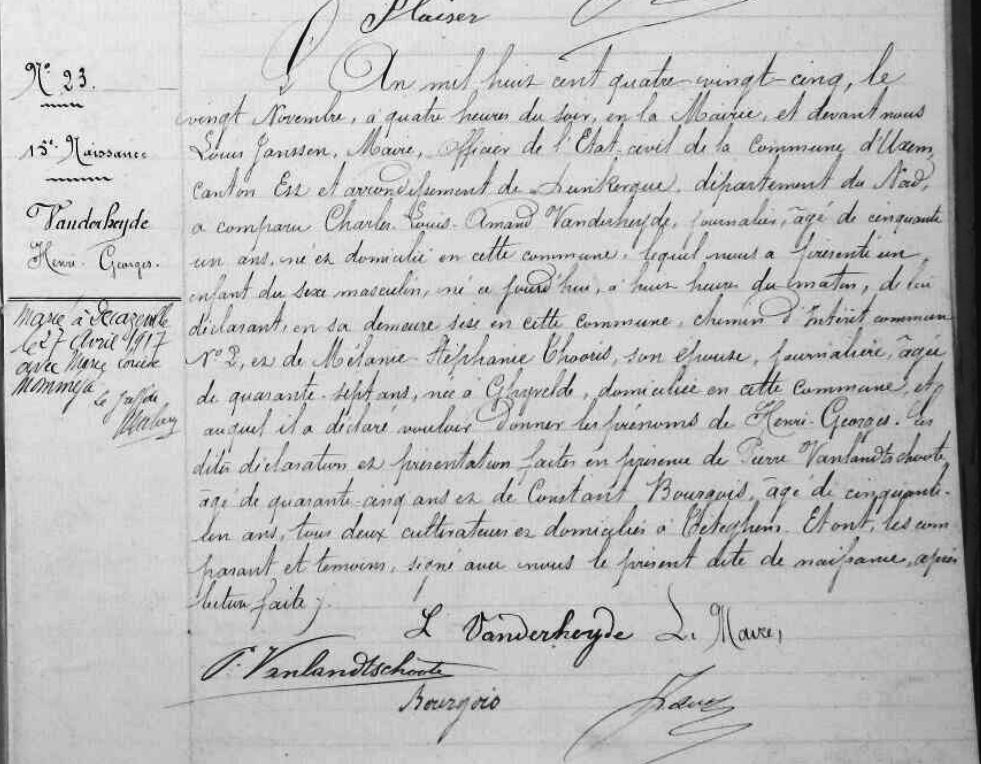 Plaiser
N° 23.
15e. Naissance
Vanderheyde
Henri-Georges.
Marié à Decazeville
le 27 Avril 1917
avec Marie Louise
Le greffier
L'An mil huit cent quatre-vingt-cinq, le
vingt Novembre, à quatre heures du soir, en la Mairie, et devant nous
Louis Janssen, Maire, Officier de l'Etat-civil de la commune d'Uxem,
canton Est et arrondissement de Dunkerque, département du Nord,
a comparu Charles-Louis-Amand Vanderheyde, journalier, âgé de cinquante
un ans, né et domicilié en cette commune, lequel nous a présenté un
enfant du sexe masculin, né ce jourd'hui, à huit heures du matin, de lui
déclarant, en sa demeure sise en cette commune, chemin d'Intérêt commun
N° 2, et de Mélanie-Stéphanie Chooris, son épouse, journalière, âgée
de quarante-sept ans, née à Ghyvelde, domiciliée en cette commune, et
auquel il a déclaré vouloir donner les prénoms de Henri-Georges. Les
dites déclaration et présentation faites en présence de Pierre Vanlandtschoote,
âgé de quarante-cinq ans et de Constant Bourgois, âgé de cinquante-
un ans, tous deux cultivateurs et domiciliés à Téteghem. Et ont, les com
parant et témoins, signé avec nous le présent acte de naissance, après
lecture faite ;.
L Vanderheyde Le Maire,
P. Vanlandtschoote
Bourgois